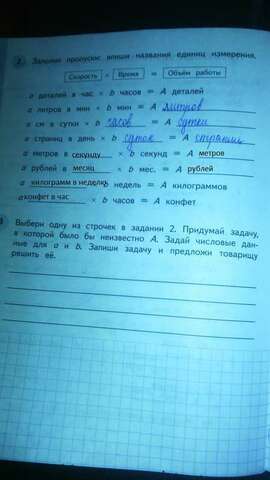 2. Заполни пропуски: впиши названия единиц измерения.
Скорость × Время = Объём работы
a деталей в час × b часов = A деталей
a литров в мин × b мин = A литров
a см в сутки × b часов = A сутки
a страниц в день × b суток = A страниц
a метров в секунду × b секунд = A метров
a рублей в месяц × b мес. = A рублей
a килограмм в неделю b недель = A килограммов
a конфет в час × b часов = A конфет
Выбери одну из строчек в задании 2. Придумай задачу,
в которой было бы неизвестно A. Задай числовые дан-
ные для a и b. Запиши задачу и предложи товарищу
решить её.